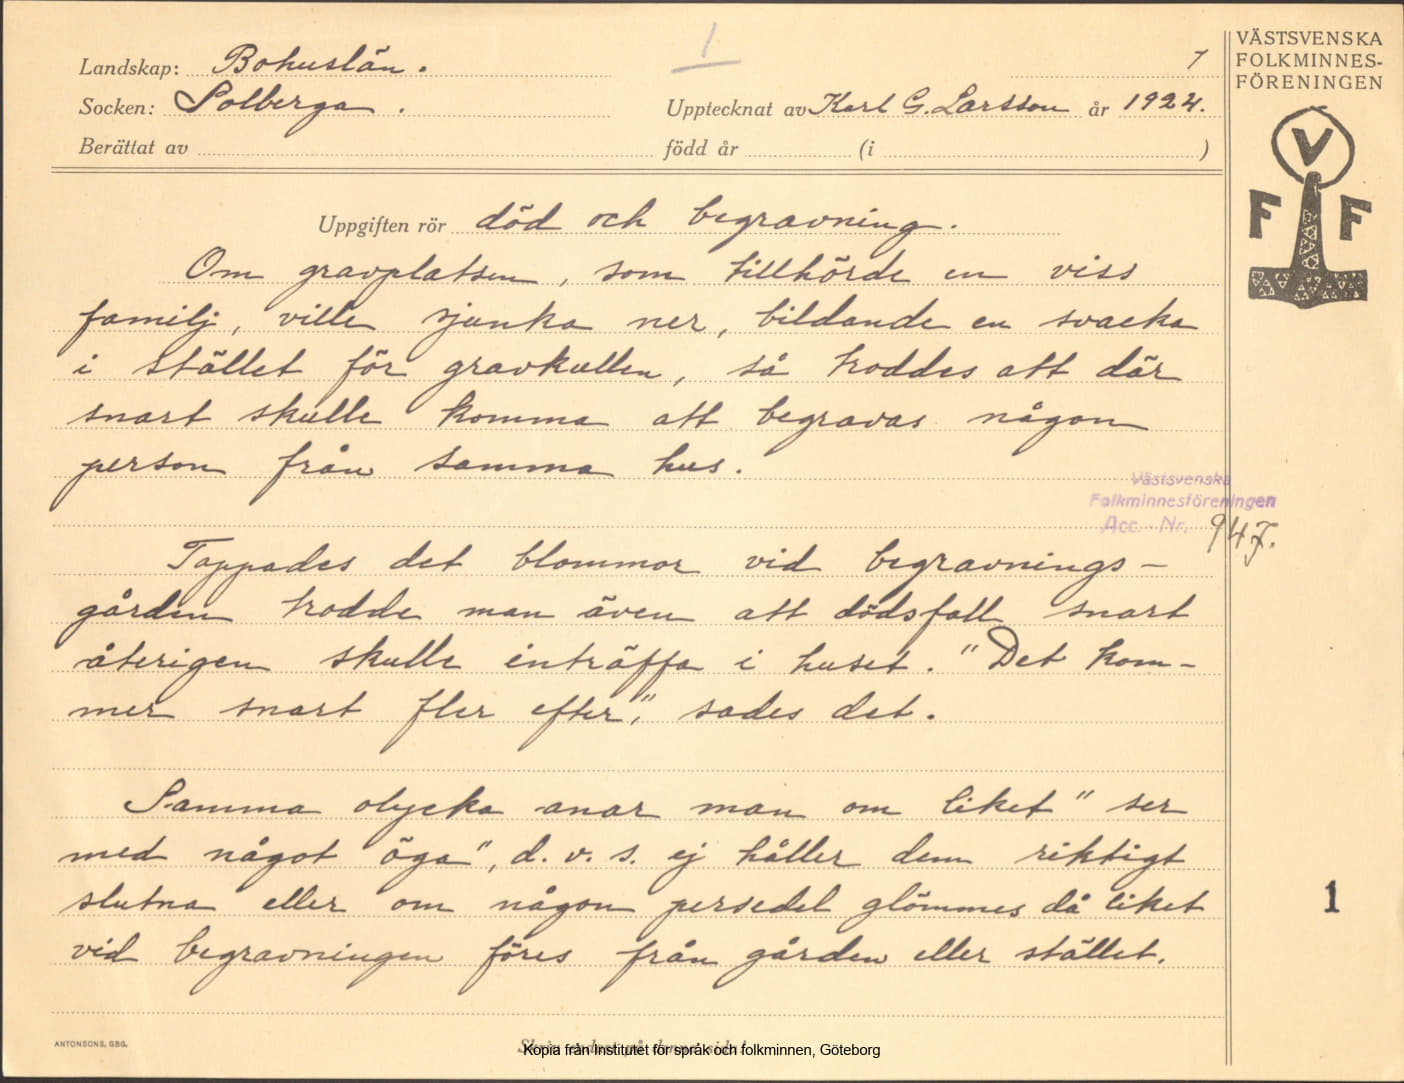 1
7
VÄSTSVENSKA
FOLKMINNES-
FÖRENINGEN
Landskap: Bohuslän.
Socken: Solberga.
Upptecknat av Karl G. Larsson år 1924.
Berättat av
född år
(i
)
V
F F
Uppgiften rör död och begravning.
Om gravplatsen, som tillhörde en viss
familj, ville sjunka ner, bildande en svacka
i stället för gravkullen, så troddes att där
snart skulle komma att begravas någon
person från samma hus.
Västsvenska
Folkminnesföreningen
Acc. Nr. 947.
Tappades det blommor vid begravnings-
gården trodde man även att dödsfall snart
återigen skulle inträffa i huset. "Det kom-
mer snart fler efter," sades det.
Samma olycka anar man om liket "ser
med något öga", d. v. s. ej håller dem riktigt
slutna eller om någon persedel glömmes då liket
vid begravningen föres från gården eller stället.
1
ANTONSONS, GBG.
Skriv endast på denna sida!
Kopia från Institutet för språk och folkminnen, Göteborg